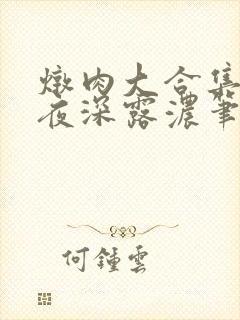 燉肉大合集
夜深露濃筆
何鍾雲